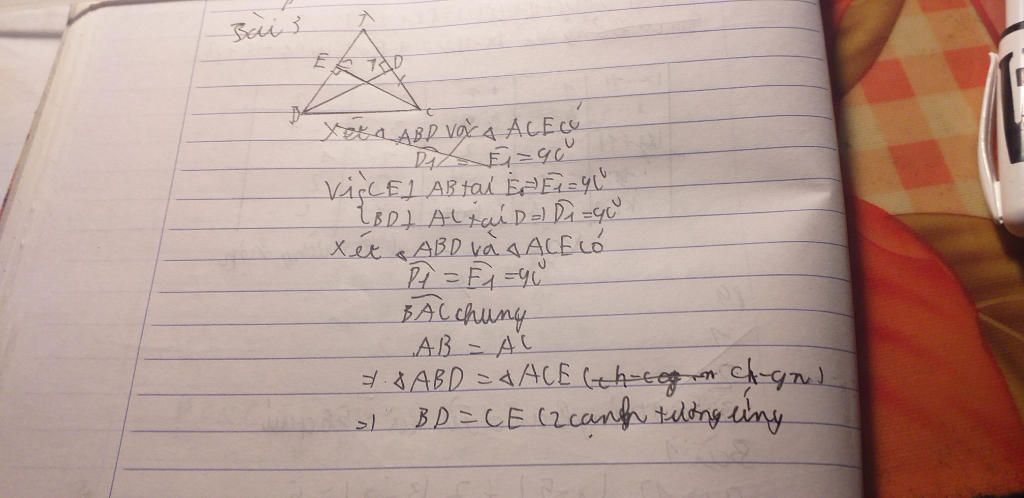 Bài 3
A
E 1 1 D
B C
Xét ∆ ABD và ∆ ACE có
D1 = E1 = 90°
Vì {CE ⊥ AB tại E => E1 = 90°
{BD ⊥ AC tại D => D1 = 90°
Xét ∆ ABD và ∆ ACE có
D1 = E1 = 90°
BAC chung
AB = AC
=> ∆ ABD = ∆ ACE (ch-gn)
=> BD = CE (2 cạnh tương ứng